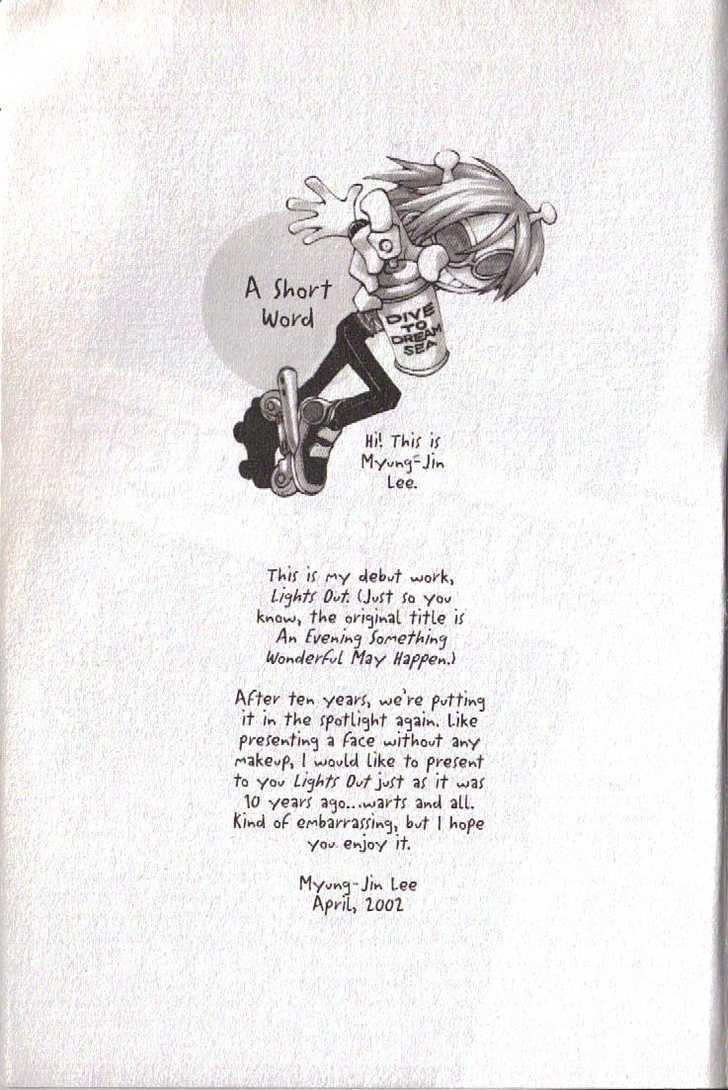 A Short
Word
DIVE
TO
DREAM
SEA
Hi! This is
Myung-Jin
Lee.
This is my debut work,
Lights Out. (Just so you
know, the original title is
An Evening Something
Wonderful May Happen.)
After ten years, we're putting
it in the spotlight again. Like
presenting a face without any
makeup, I would like to present
to you Lights Out just as it was
10 years ago...warts and all.
Kind of embarrassing, but I hope
you enjoy it.
Myung-Jin Lee
April, 2002